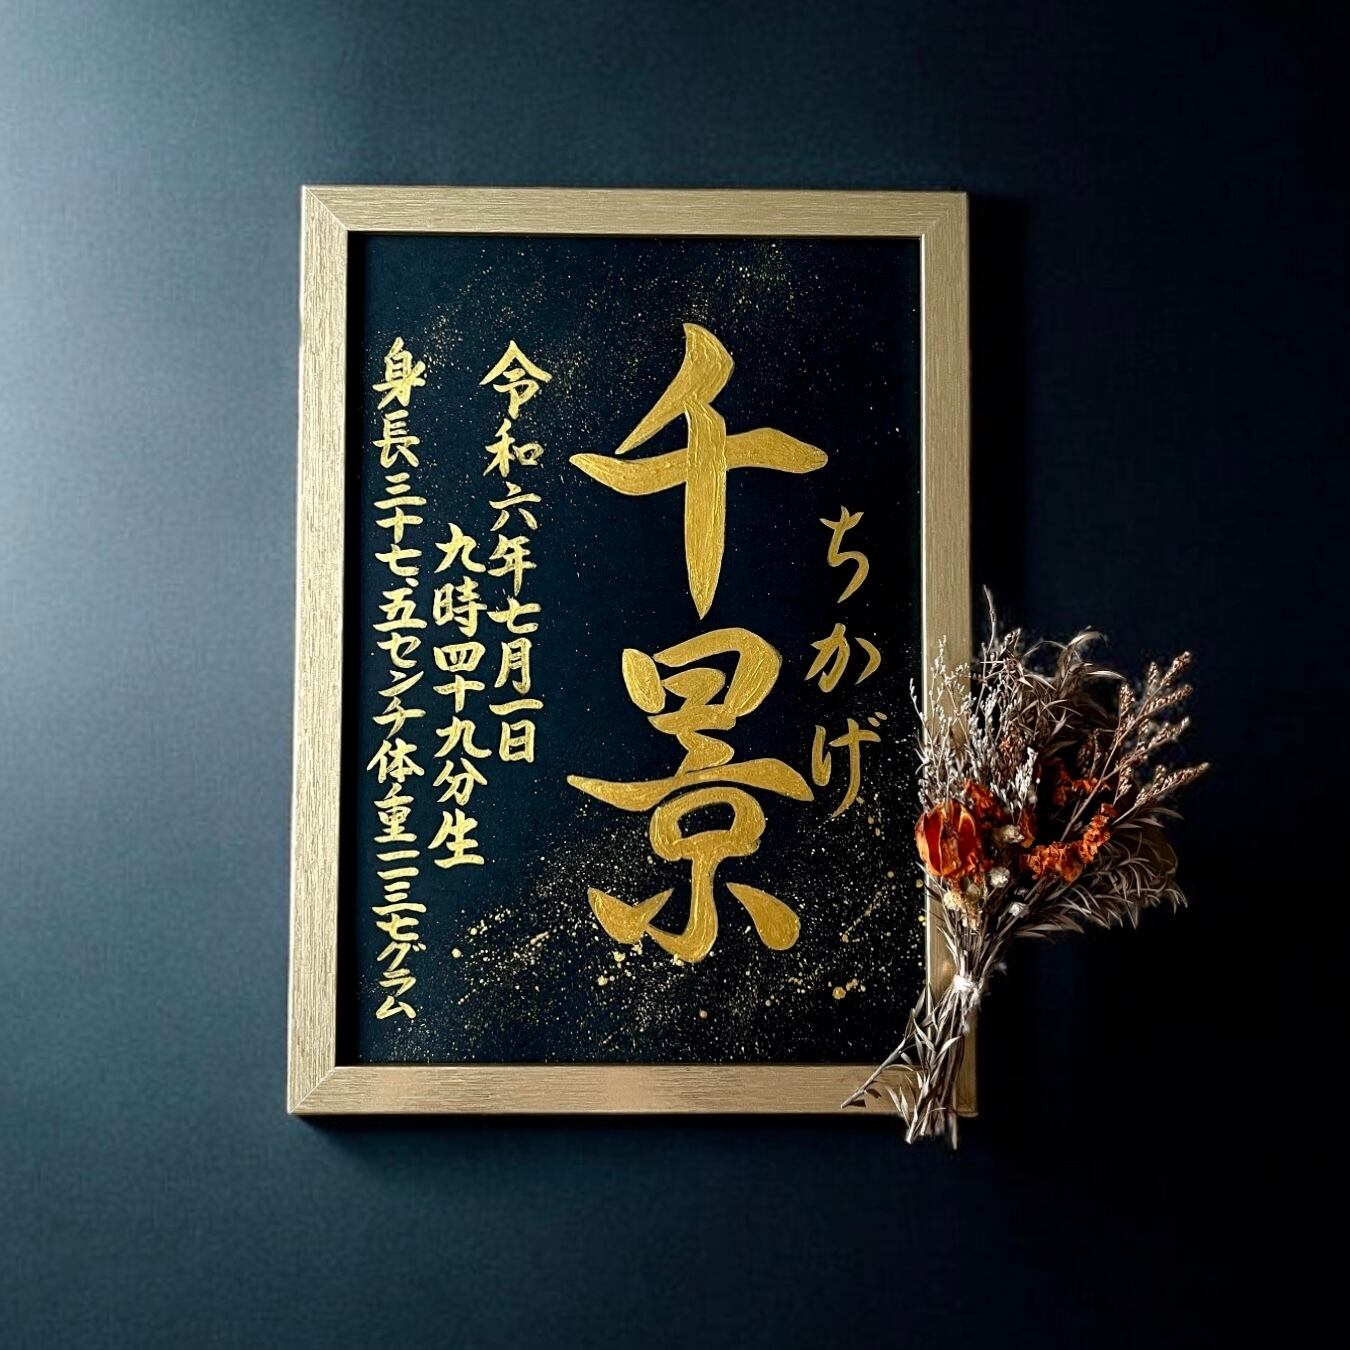 千景
ちかげ
令和六年七月一日
九時四十九分生
身長三十七、五センチ体重一一三七グラム